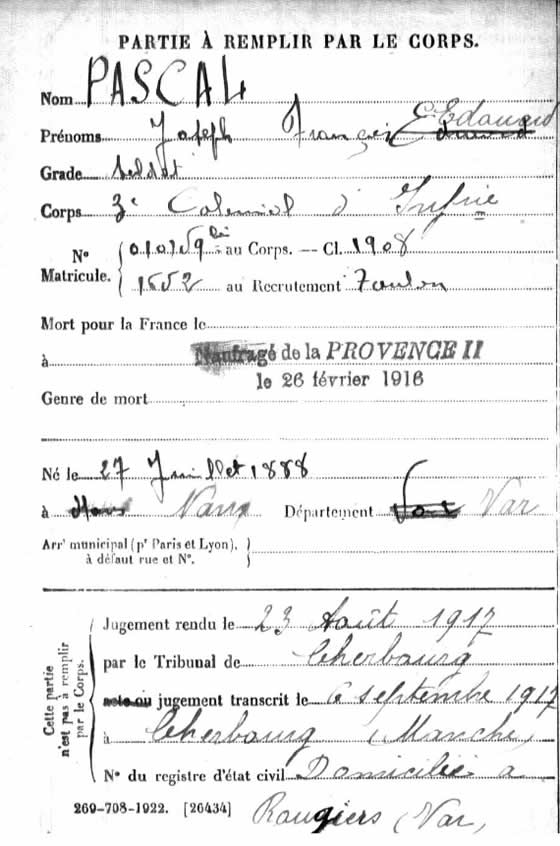 PARTIE À REMPLIR PAR LE CORPS.
Nom PASCAL
Prénoms Joseph François Edouard
Grade soldat
Corps 3e Colonial d'Infrie
N° Matricule.
010169 bis au Corps. — Cl. 1908
1552 au Recrutement Toulon
Mort pour la France le
à Naufragé de la PROVENCE II
le 26 février 1916
Genre de mort
Né le 27 Juillet 1888
à Nans Département Var
Arrt municipal (pr Paris et Lyon),
à défaut rue et N°.
Cette partie n'est pas à remplir par le Corps.
Jugement rendu le 23 Août 1917
par le Tribunal de Cherbourg
acte ou jugement transcrit le 6 septembre 1917
à Cherbourg (Manche)
N° du registre d'état civil Domicilié a
269-708-1922. [26434] Rougiers (Var)